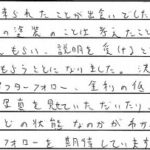 来られたことが出会いでした
の塗装のことは考えたこと
しもらい、説明を受けると
もらうことになりました。決
フターフォロー、金利の低
写真を見せていただいたり、
どの状態なのかがわか
フォローを期待しています